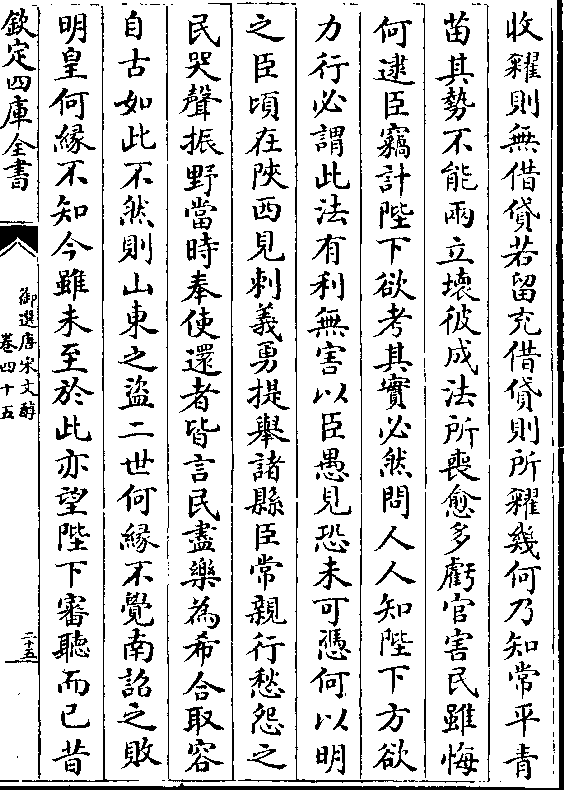 收糴則無借貸若留充借貸則所糴幾何乃知常平青
苗其勢不能兩立壞彼成法所喪愈多虧官害民雖悔
何逮臣竊計陛下欲考其實必然問人人知陛下方欲
力行必謂此法有利無害以臣愚見恐未可憑何以明
之臣頃在陝西見刺義勇提舉諸縣臣常親行愁怨之
民哭聲振野當時奉使還者皆言民盡樂為希合取容
自古如此不然則山東之盜二世何緣不覺南詔之敗
明皇何緣不知今雖未至於此亦望陛下審聽而已昔
欽定四庫全書
御選唐宋文醇
卷四十五
二十五